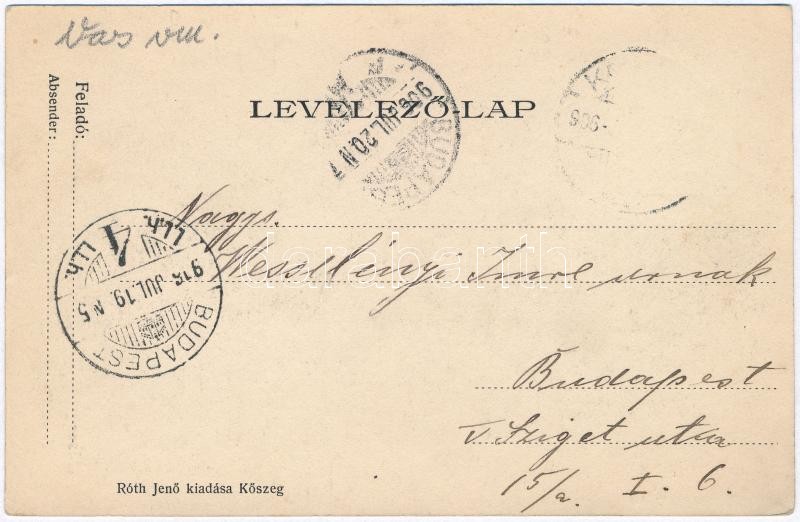 Vas vm.
LEVELEZŐ-LAP
Feladó:
Absender:
BUDAPEST
906 JUL. 20. N 7
906
Nagys.
Wesselényi Imre urnak
BUDAPEST
JUL. 19. N 5
I.l.h. I.l.h.
Budapest
V. Sziget utca
15/a. I. 6.
Róth Jenő kiadása Kőszeg
darabanth